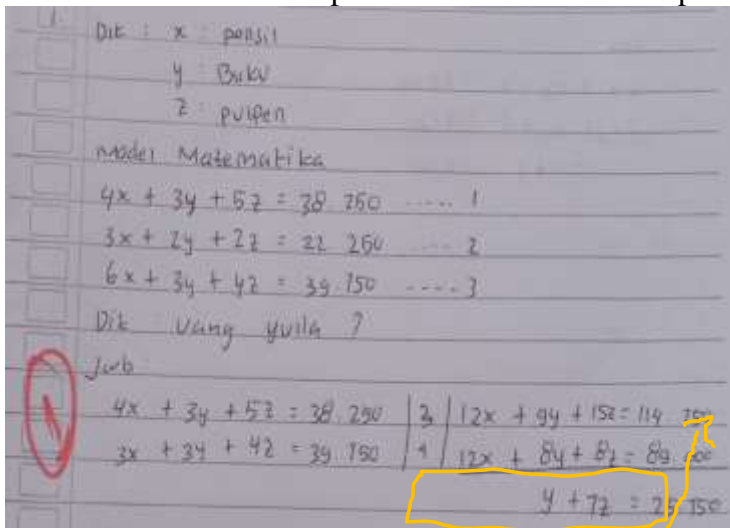 1. Dit : x : pensil
y : Buku
z : pulpen
Model Matematika
4x + 3y + 5z = 38.250 ..... 1
3x + 2y + 2z = 22.250 .... 2
6x + 3y + 4z = 39.750 .... 3
Dit uang yuila ?
Jwb
4x + 3y + 5z = 38.250 | 3 | 12x + 9y + 15z = 114.750
3x + 3y + 4z = 39.750 | 4 | 12x + 8y + 8z = 89.000
y + 7z = 25.750